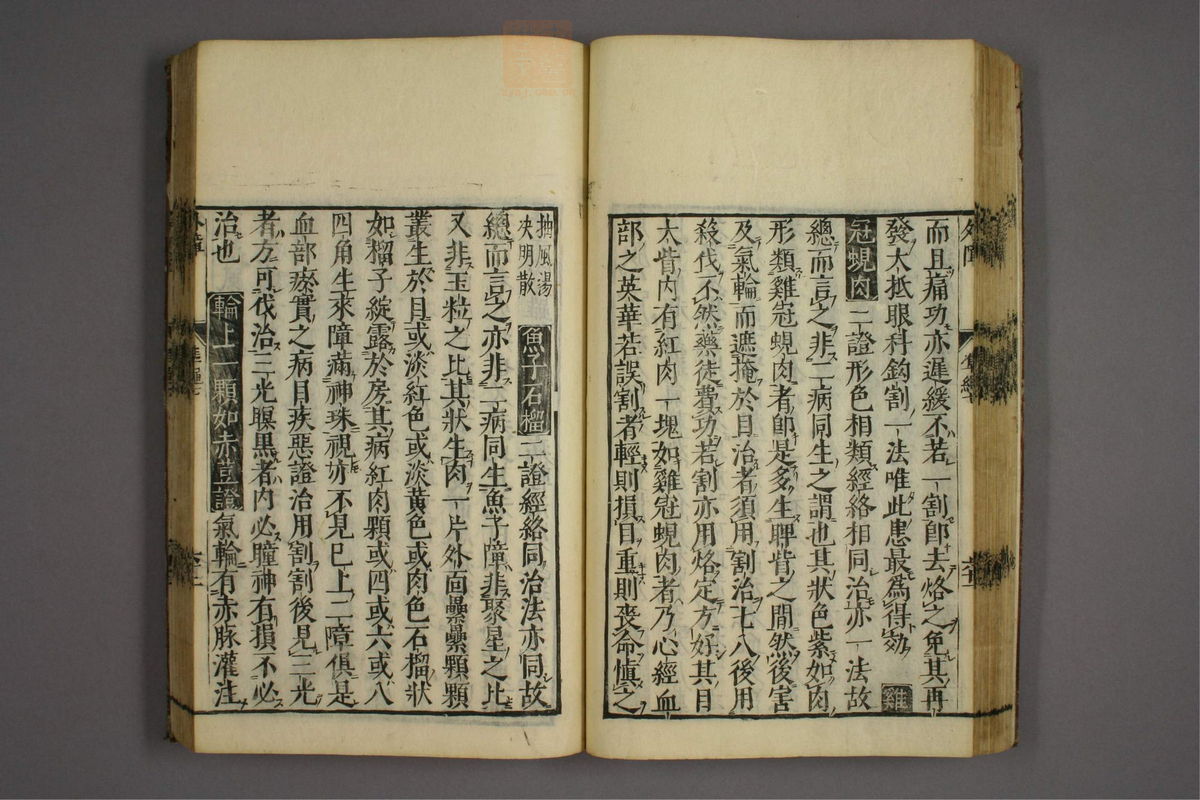 而且痛功亦遲緩不若一割即去烙之免其再
發大抵眼科鈎割一法唯此患最為得効 雞
冠蜆肉 二證形色相類經絡相同治亦一法故
總而言之非二病同生之謂也其狀色紫如肉
形類雞冠蜆肉者即是多生睥眥之間然後害
及氣輪而遮掩於目治者須用割治七八後用
殺伐不然藥徒費功若割亦用烙定方好其目
大眥内有紅肉一塊如雞冠蜆肉者乃心經血
部之英華若誤割者輕則損目重則喪命慎之
抽風湯
夬明散
魚子石榴 二證經絡同治法亦同故
總而言之亦非二病同生魚子障非聚星之比
又非玉粒之比其狀生肉一片外面纍纍顆顆
叢生於目或淡紅色或淡黄色或肉色石榴狀
如榴子綻露於房其病紅肉顆或四或六或八
四角生來障滿神珠視妨不見已上二障俱是
血部瘀實之病目疾惡證治用割割後見三光
者方可伐治三光瞑黑者内必瞳神有損不必
治也 輪上一顆如赤豆證 氣輪有赤脉灌注